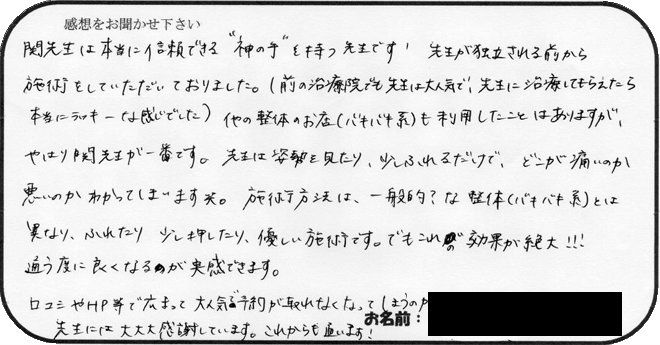 感想をお聞かせ下さい
関先生は本当に信頼できる"神の手"を持つ先生です! 先生が独立される前から
施術をしていただいておりました。(前の治療院でも先生は大人気で、先生に治療してもらえたら
本当にラッキーな感じでした) 他の整体のお店(バキバキ系)も利用したことはありますが、
やはり関先生が一番です。先生は姿勢を見たり、少しふれるだけで、どこが痛いのか
悪いのかわかってしまいます。施術方法は、一般的?な整体(バキバキ系)とは
異なり、ふれたり 少し押したり、優しい施術です。でもこれの効果が絶大!!!
通う度に良くなるのが実感できます。
口コミやHP等で広まって大人気で予約が取れなくなってしまうのが
お名前:
先生には大大大感謝しています。これからも通います!